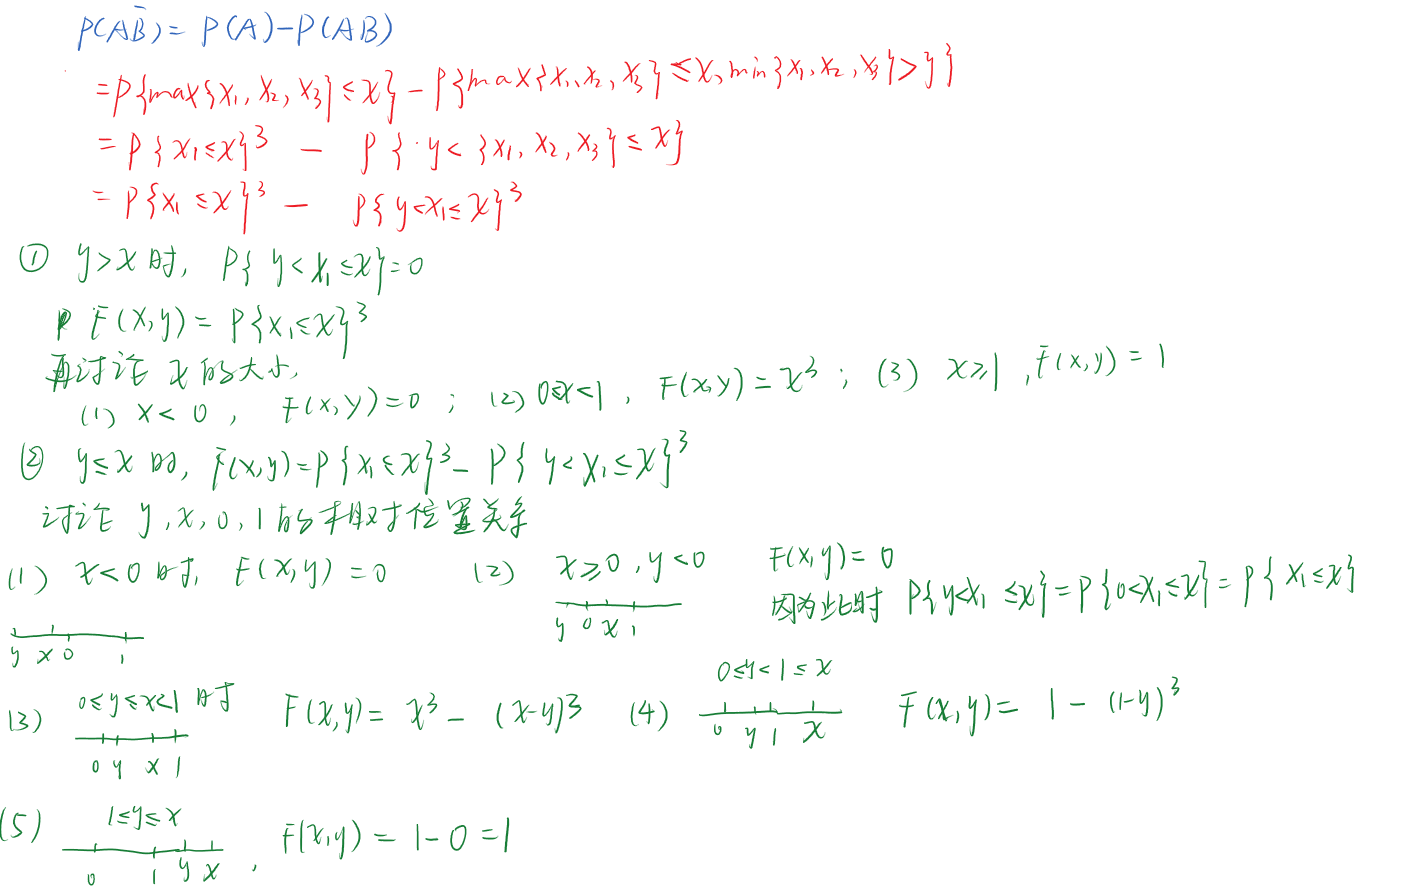 P(AB̄) = P(A) - P(AB)
= P{max{x₁, x₂, x₃} ≤ x} - P{max{x₁, x₂, x₃} ≤ x, min{x₁, x₂, x₃} > y}
= P{x₁ ≤ x}³ - P{y < {x₁, x₂, x₃} ≤ x}
= P{x₁ ≤ x}³ - P{y < x₁ ≤ x}³
① y > x 时, P{y < x₁ ≤ x} = 0
F(x,y) = P{x₁ ≤ x}³
再讨论 x 的大小,
(1) x < 0, F(x,y) = 0; (2) 0≤x<1, F(x,y) = x³; (3) x ≥ 1, F(x,y) = 1
② y ≤ x 时, F(x,y) = P{x₁ ≤ x}³ - P{y < x₁ ≤ x}³
讨论 y, x, 0, 1 的相对位置关系
(1) x < 0 时, F(x,y) = 0 (2) x ≥ 0, y < 0 F(x,y) = 0
因为此时 P{y<x₁ ≤ x} = P{0<x₁ ≤ x} = P{x₁ ≤ x}
y x 0 1
y 0 x 1
(3) 0 ≤ y ≤ x < 1 时 F(x,y) = x³ - (x-y)³ (4) 0 ≤ y < 1 ≤ x F(x,y) = 1 - (1-y)³
0 y x 1
0 y 1 x
(5) 1 ≤ y ≤ x, F(x,y) = 1 - 0 = 1
0 1 y x